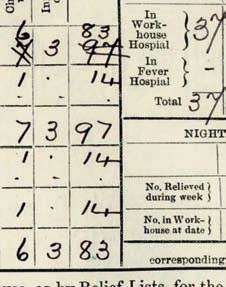 6 83 In
7 3 97 Work- 37
house
Hospial
1 . 14 In
Fever -
. . . Hospial
Total 37
7 3 97
NIGHT
1 . 14
. . .
No. Relieved
during week
1 . 14
No. in Work-
house at date
6 3 83
corresponding
as by Relief Lists, for the